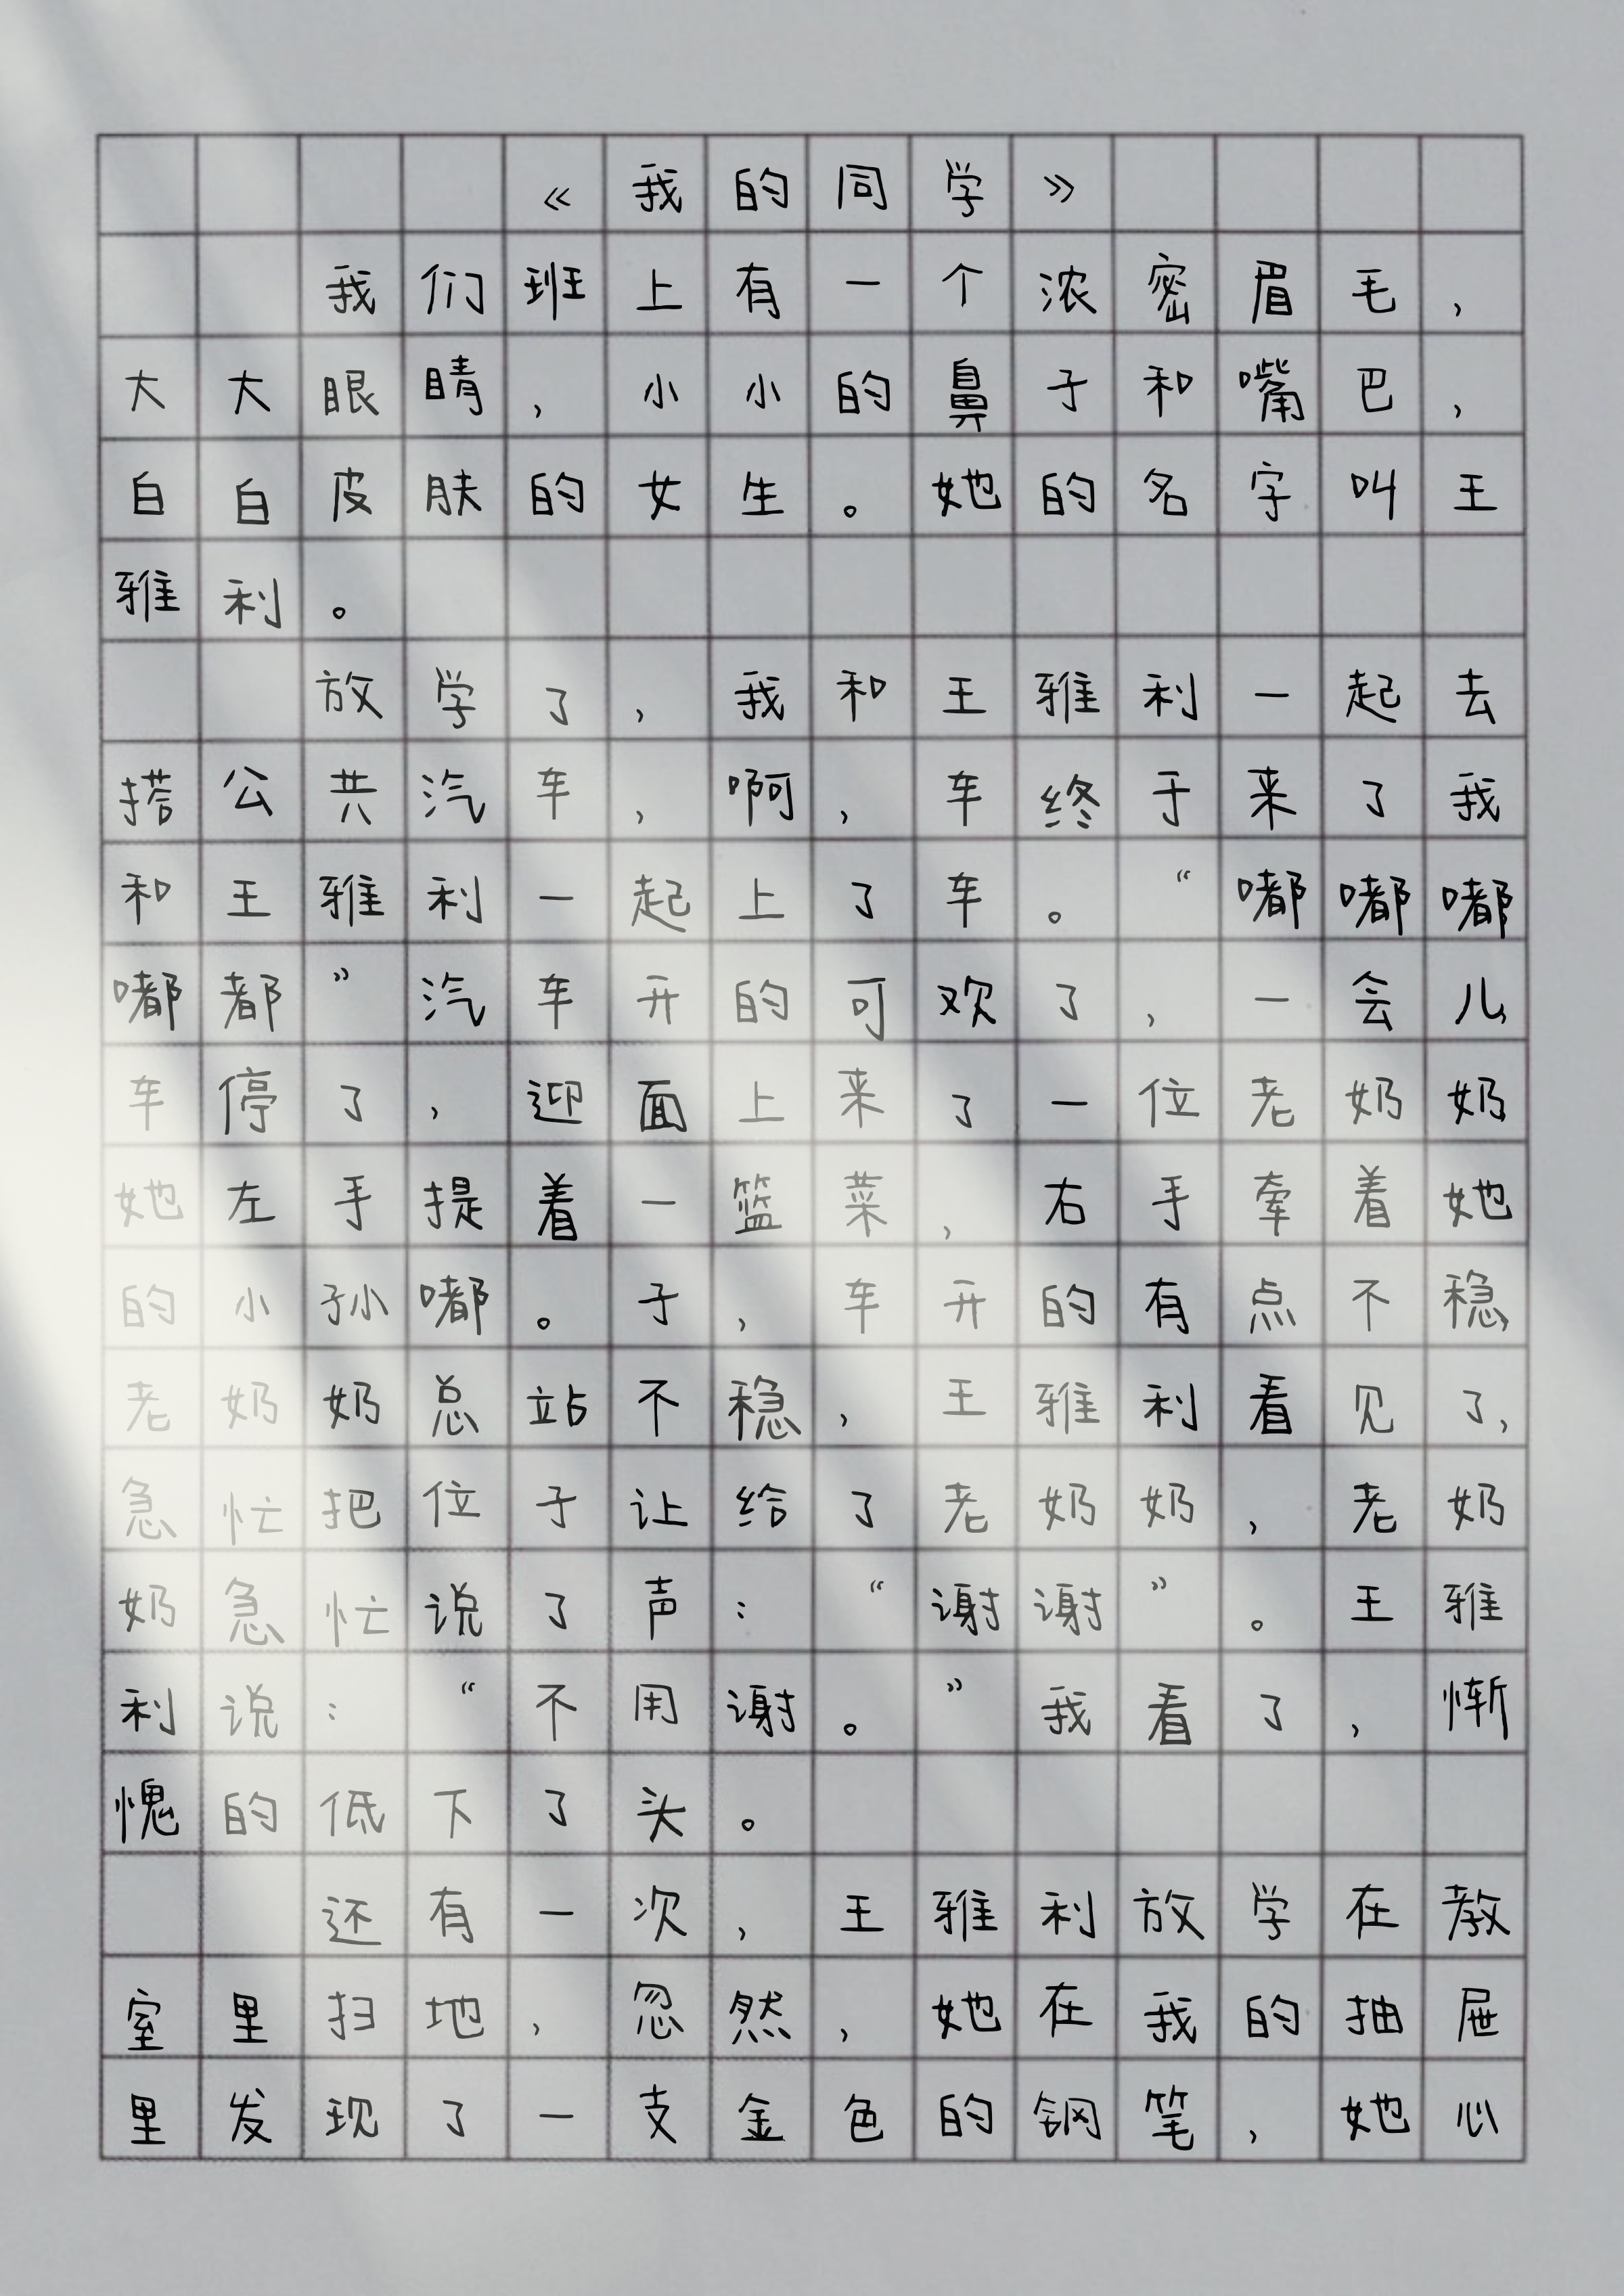 《我的同学》
我们班上有一个浓密眉毛，
大大眼睛，小小的鼻子和嘴巴，
白白皮肤的女生。她的名字叫王
雅利。
放学了，我和王雅利一起去
搭公共汽车，啊，车终于来了我
和王雅利一起上了车。“嘟嘟嘟
嘟都”汽车开的可欢了，一会儿，
车停了，迎面上来了一位老奶奶
她左手提着一篮菜，右手牵着她
的小孙嘟。子，车开的有点不稳，
老奶奶总站不稳，王雅利看见了，
急忙把位子让给了老奶奶，老奶
奶急忙说了声：“谢谢”。王雅
利说：“不用谢。”我看了，惭
愧的低下了头。
还有一次，王雅利放学在教
室里扫地，忽然，她在我的抽屉
里发现了一支金色的钢笔，她心